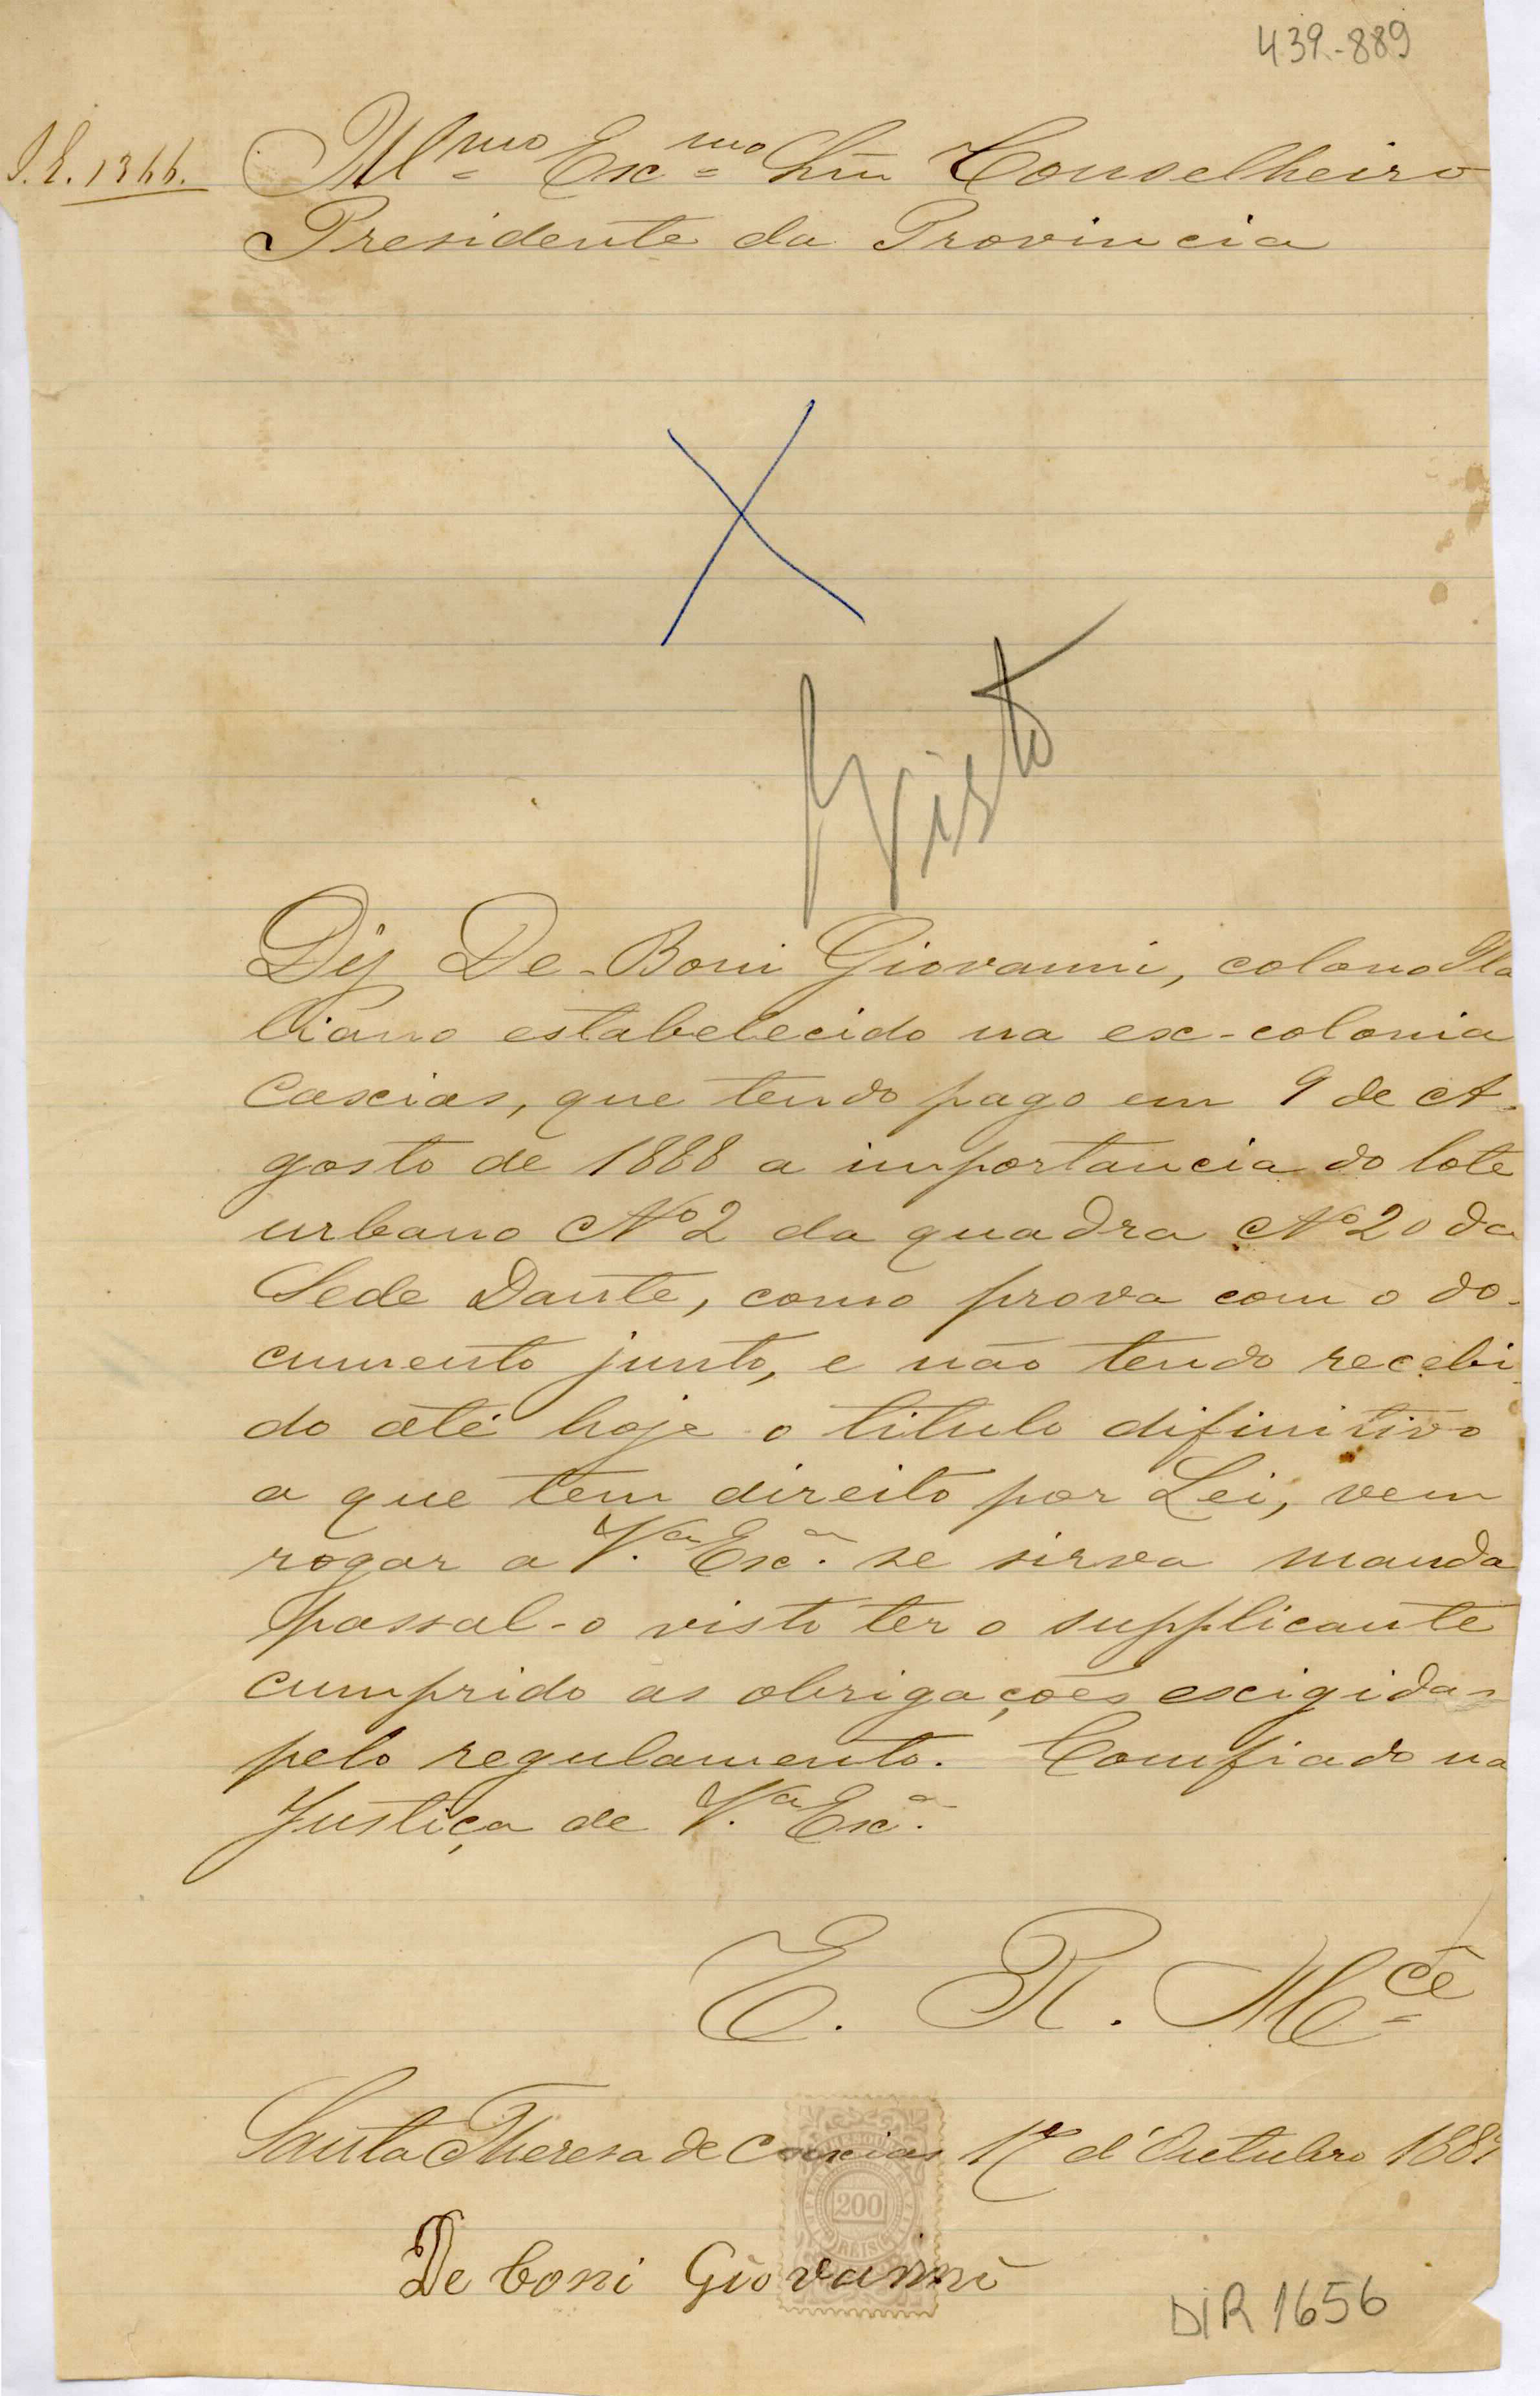 439-889
Illmo Excmo Snr Conselheiro
Presidente da Provincia
Visto
Diz De-Boni Giovanni, colono Ita
liano estabelecido na ex-colonia
Caxias, que tendo pago em 9 de A-
gosto de 1888 a importancia do lote
urbano No 2 da quadra No 20 da
Sede Dante, como prova com o do-
cumento junto, e não tendo recebi-
do até hoje o titulo difinitivo
a que tem direito por Lei, vem
rogar a V.a Exc.a se sirva manda
passal-o visto ter o supplicante
cumprido as obrigações exigidas
pelo regulamento. Comfiado na
Justiça de V.a Exc.a
E. R. Mce
Santa Thereza de Caxias d'Outubro
200
REIS
De boni Giovanni
DIR 1656